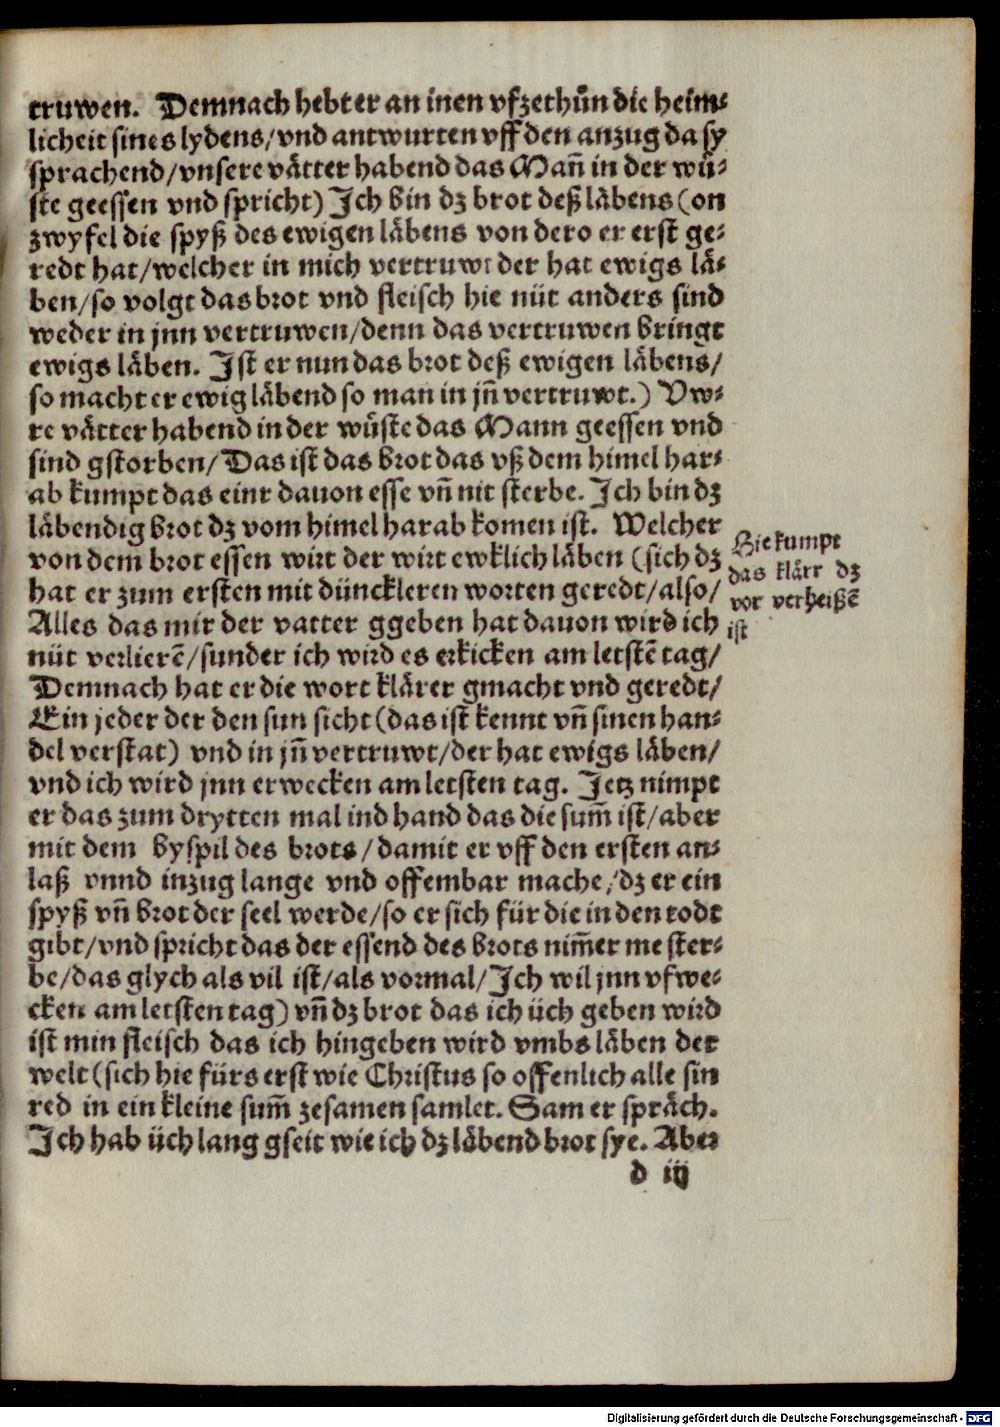 truwen. Demnach hebt er an inen vfzethůn die heim⸗
licheit sines lydens/vnd antwurten vff den anzug da sy
sprachend/vnsere vaͤtter habend das Mañ in der wuͤ⸗
ste geessen vnd spricht) Ich bin dz brot deß laͤbens (on
zwyfel die spyß des ewigen laͤbens von dero er erst ge⸗
redt hat/welcher in mich vertruwt der hat ewigs laͤ⸗
ben/so volgt das brot vnd fleisch hie nüt anders sind
weder in jnn vertruwen/denn das vertruwen bringt
ewigs laͤben. Ist er nun das brot deß ewigen laͤbens/
so macht er ewig laͤbend so man in jñ vertruwt.) Vw⸗
re vaͤtter habend in der wuͤste das Mann geessen vnd
sind gstorben/Das ist das brot das vß dem himel har⸗
ab kumpt das einr dauon esse vñ nit sterbe. Ich bin dz
laͤbendig brot dz vom himel harab komen ist. Welcher
von dem brot essen wirt der wirt ewklich laͤben (sich dz
hat er zum ersten mit dünckleren worten geredt/also/
Alles das mir der vatter ggeben hat dauon wird ich
nüt verlierē/sunder ich wird es erkicken am letstē tag/
Demnach hat er die wort klaͤrer gmacht vnd geredt/
Ein jeder der den sun sicht (das ist kennt vñ sinen han⸗
del verstat) vnd in jñ vertruwt/der hat ewigs laͤben/
vnd ich wird jnn erwecken am letsten tag. Jetz nimpt
er das zum drytten mal ind hand das die sum̃ ist/aber
mit dem byspil des brots/damit er vff den ersten an⸗
laß vnnd inzug lange vnd offembar mache/dz er ein
spyß vñ brot der seel werde/so er sich für die in den todt
gibt/vnd spricht das der essend des brots nim̃er me ster⸗
be/das glych als vil ist/als vormal/Ich wil jnn vfwe⸗
cken am letsten tag) vñ dz brot das ich üch geben wird
ist min fleisch das ich hingeben wird vmbs laͤben der
welt (sich hie fürs erst wie Christus so offenlich alle sin
red in ein kleine sum̃ zesamen samlet. Sam er spraͤch.
Ich hab üch lang gseit wie ich dz laͤbend brot sye. Aber
d iij
Hie kumpt
das klaͤrr dz
vor verheißē
ist
Digitalisierung gefördert durch die Deutsche Forschungsgemeinschaft - DFG